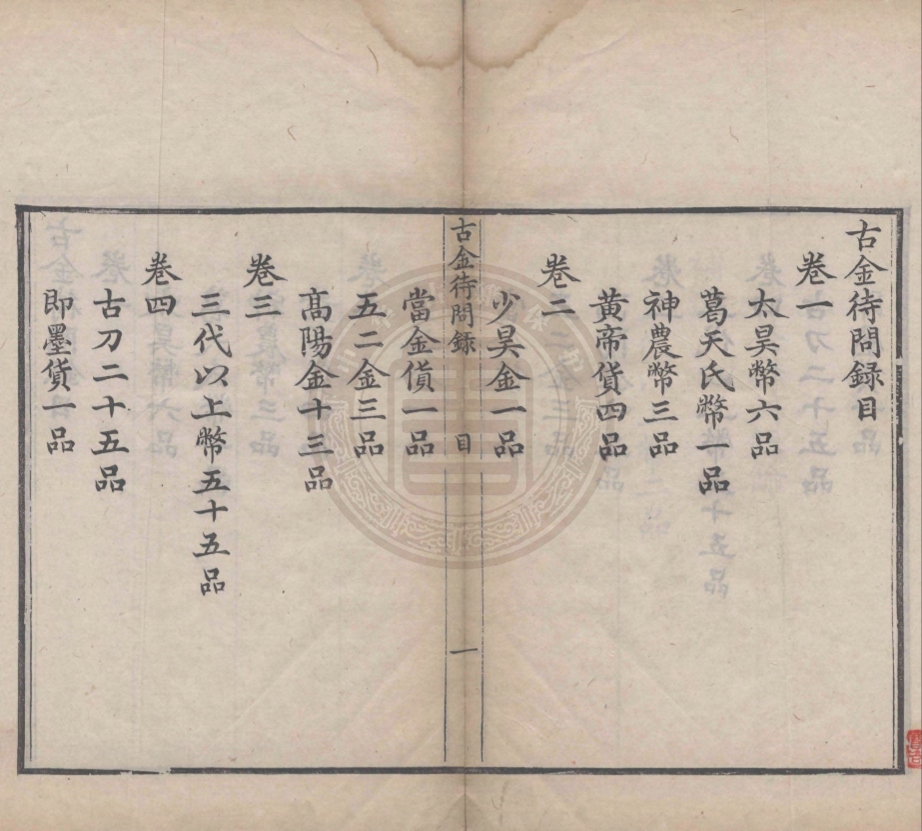 古金待問録目
卷一
太昊幣六品
葛天氏幣一品
神農幣三品
黄帝貨四品
卷二
少昊金一品
古金待問録 目 一
當金貨一品
五二金三品
髙陽金十三品
卷三
三代以上幣五十五品
卷四
古刀二十五品
即墨貨一品